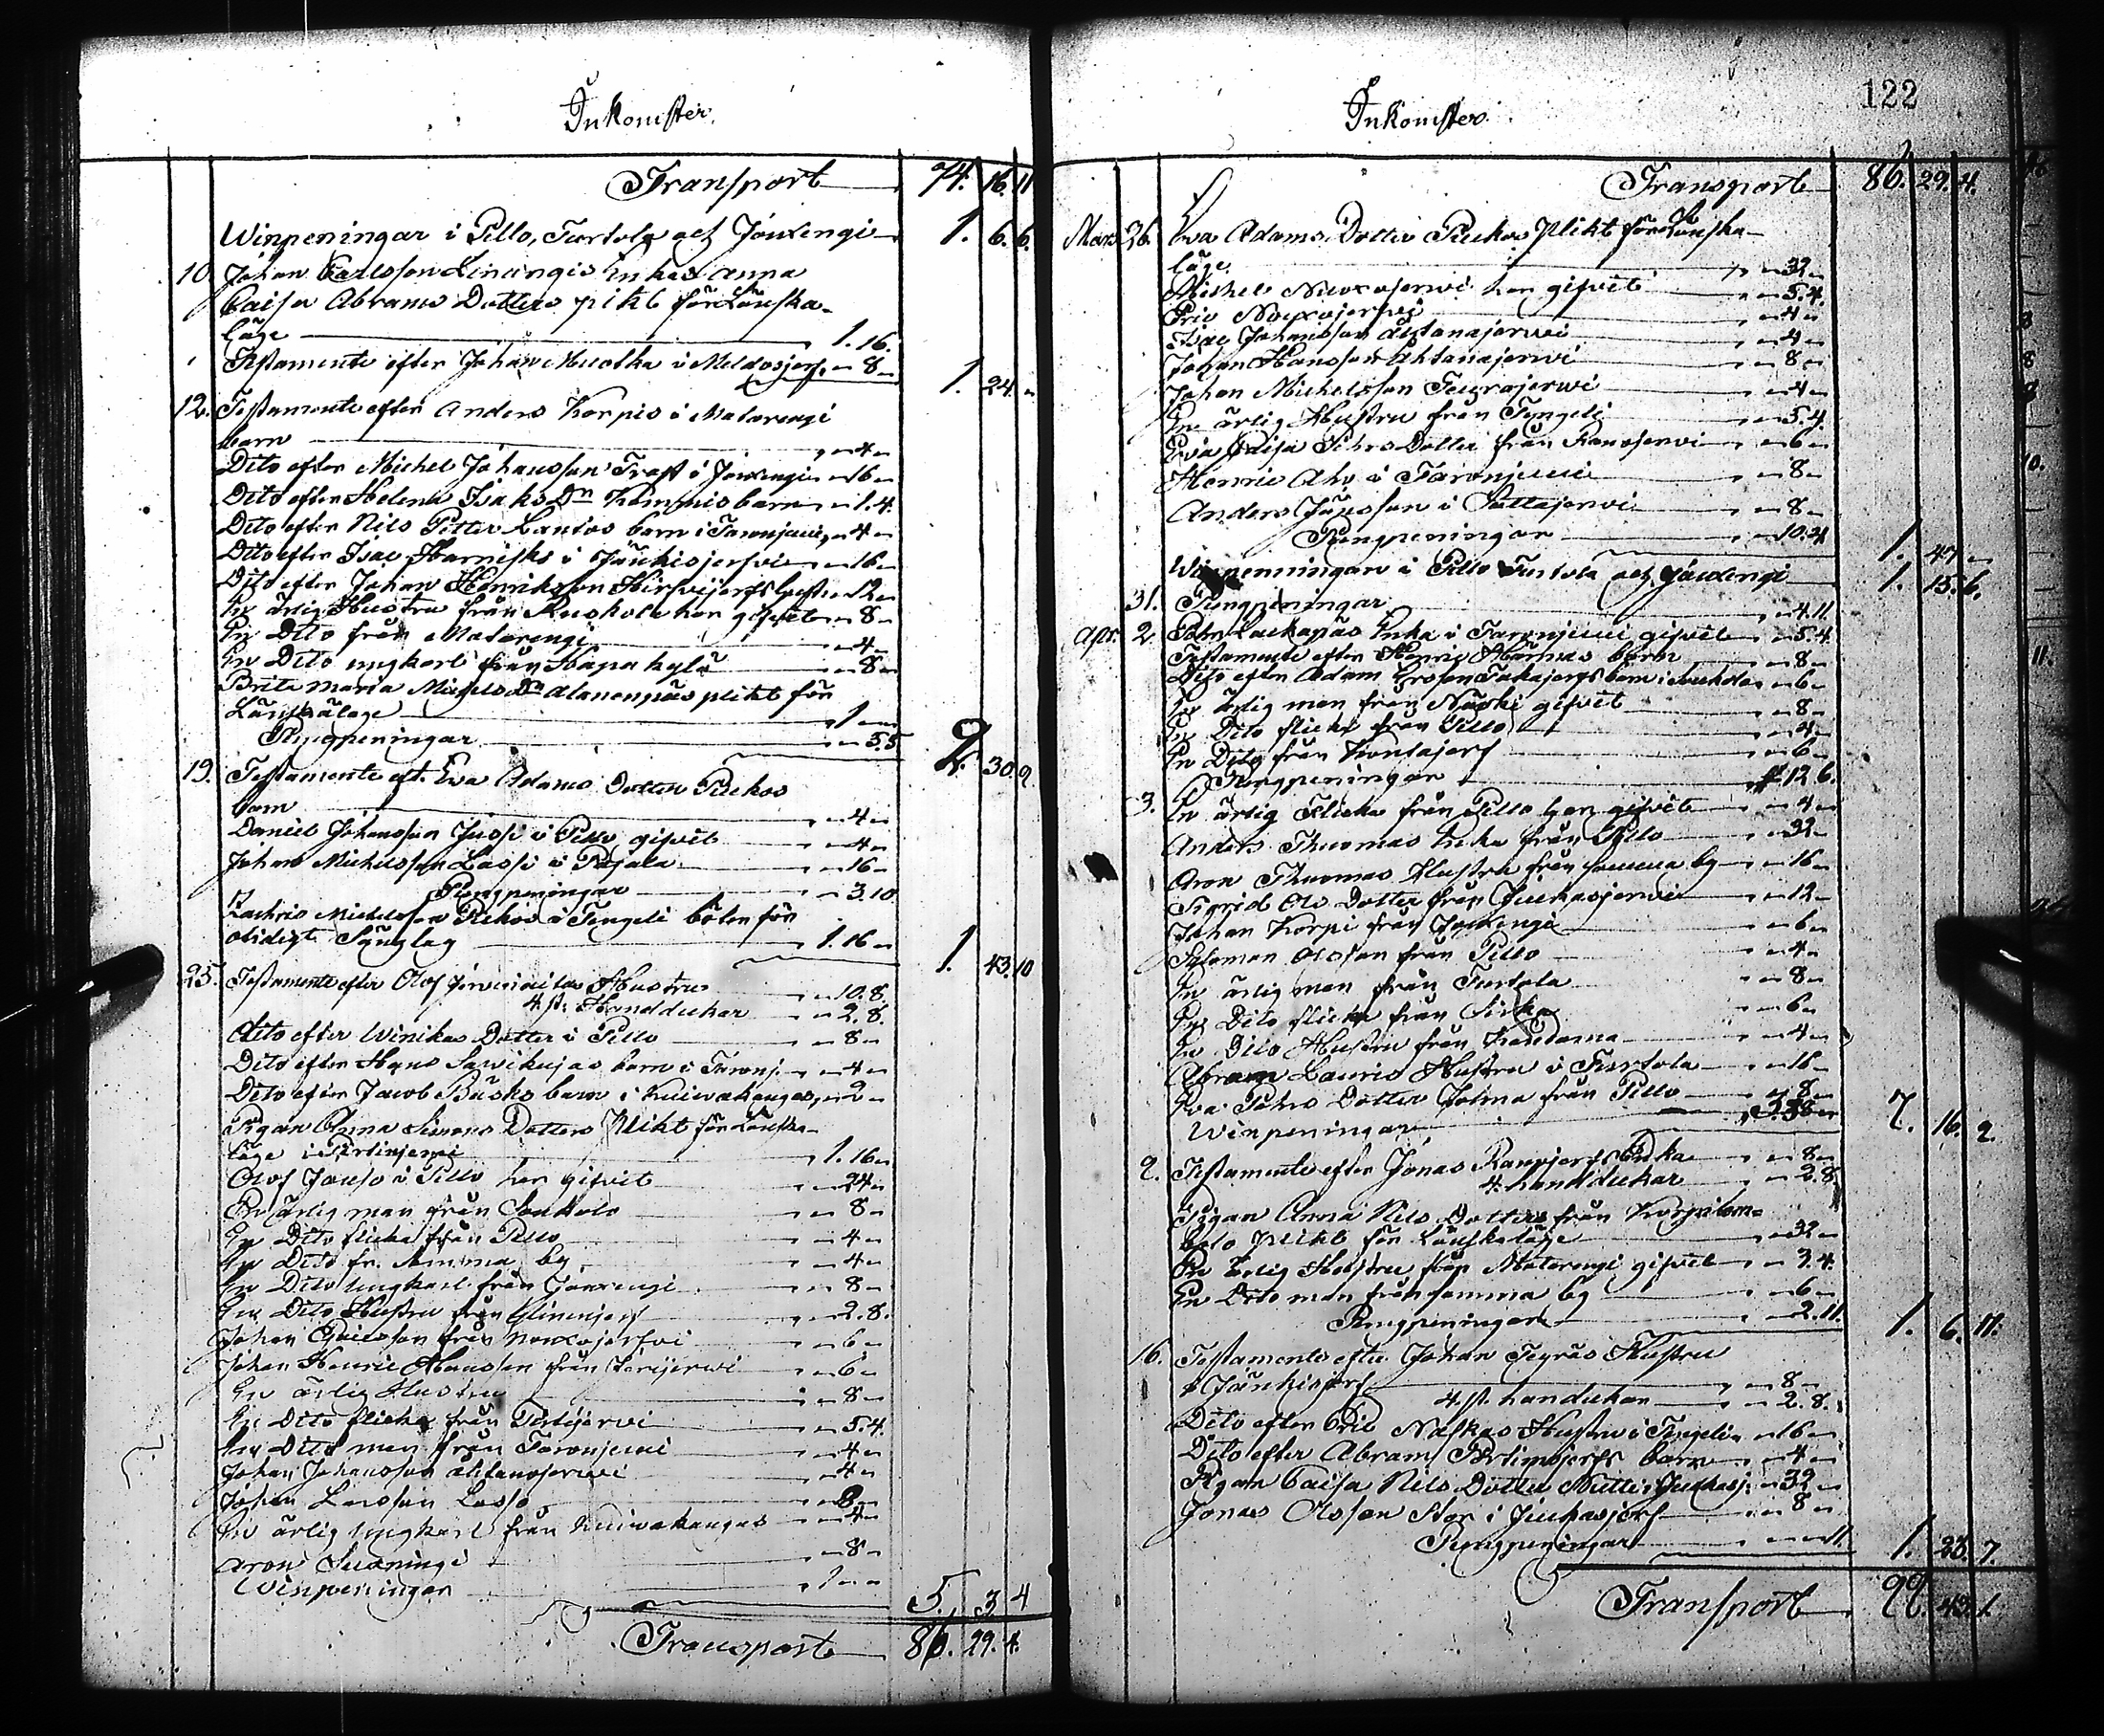 Inkomster.
Transport 74. 16. 11
Winpeningar i Pello, Turtola och Jouxengi 1. 6. 6.
10 Johan Carlsson Liningis Enkas Anna
Caisa Abrams Dotters plikt för Lönska-
läge 1. 16.
Testamente efter Johan Muotka i Meldosjerf 8 1. 24
12. Testamente efter Anders Korpis i Matarengi
barn 4
Dito efter Michel Johansson Traft i Jouxengi 16
Dito efter Helena Isaks Dr Kemmis barn 1. 4
Dito efter Nils Petter Lantos barn i Taronjemi 4
Dito efter Isac Harnisks i Jänkisjerfvi 16
Dito efter Johan Henriksson Hirfvijerfs 12
En ärlig Hustru från Ruskola har gifvit 8
En Dito från Matarengi 4
En Dito ungkarl från Hapakylä 8
Brita Maria Michels Dr Alanenpäs plikt för
Länskaläge 1
Pungpeningar 5. 5 2. 30. 9
19. Testamente eft. Eva Adams Dotter Piekos
barn 4
Daniel Johansson Jussi i Pello gifvit 4
Johan Michelsson Lassi i Pajala 16
Pungpeningar 3. 10
Zachris Michelsson Piekos i Tengeli böter för
otidigt Sänglag 1. 16 1. 43. 10
25. Testamente efter Olof Hustru 10. 8.
4 st. Handdukar 2. 8.
Dito efter Winikas Dotter i Pello 8
Dito efter Hans Sawikujas barn i Taronj. 4
Dito efter Jacob Bäcks barn i Kuiwakangas 2
Pigan Anna Simons Dotters Plikt för Lönska-
läge i Pirtinjemi 1. 16
Olof Jauso i Pello har gifvit 24
En ärlig man från Soukolo 8
En Dito flicka från Pello 4
En Dito fr. samma by 4
En Dito ungkarl från Jouxengi 8
En Dito Hustru från Alinenjerf 2. 8.
Johan Ericsson från Nouxajerfvi 6
Johan Henric Hansson från 6
En ärlig Hustru 8
En Dito flicka från 5. 4.
En Dito man från Taronjemi 4
Johan Johansson Ahtanajerwi 4
Johan Larsson Lasso 8
En ärlig ungkarl från Kuiwakangas 4
Aron Suxningi 8
Winpeningar 1 5. 3 4
Transport 86. 29. 4.
122
Inkomster.
Transport 86. 29. 4.
Mars 26. Eva Adams Dotter Piekos Plikt för Lönska-
läge 32
Michel Nuoxajerwi har gifvit 5. 4.
Eric Nouxajerfvi 4
Isac Johansson Ahtanajerwi 4
Johan Hansson Ahtanajerwi 8
Johan Michelsson Teurajerwi 4
En ärlig Hustru från Tengeli 5. 4
Eva Caisa Pehrs Dotter från Raneserwi 6
Henric Aho i Taronjemi 8
Anders Jönsson i Pattajerwi 8
Pungpeningar 10. 4 1. 47
Winpenningar i Pello Turtola och Jouxengi 1. 15. 6.
31. Pungpeningar 4. 11.
Apr. 2 Pehr Laukapäs Enka i Taronjemi gifvit 5. 4
Testamente efter Henric Harmas barn 8
Dito efter Adam Erssons barn 6
En ärlig man från Närki gifvit 8
En Dito flicka från Pello 4
En Dito från Kontajerf 6
Pungpeningar 12. 6.
3. En ärlig Flicka från Pello har gifvit 4
Anders Thuomas Enka från Pello 32
Aron Thuomas Hustru från samma by 16
Sigrid Ols Dotter från Juckasjerwi 12
Johan Korpi från Jouxengi 6
Salomon Olsson från Pello 4
En ärlig man från Turtola 8
En Dito flicka från Sirka 6
En Dito Hustru från Kardama 4
Abram Lauris Hustru i Turtola 16
Eva Pehrs Dotter Johna från Pello 8
Winpeningar 2. 38 7. 16. 2.
9. Testamente efter Jonas Raneserfs Enka 8
4. handdukar 2. 8
Pigan Anna Nils Dotters från Korpilom-
bolo plikt för Länskaläge 32
En ärlig Hustru från Matarengi gifvit 3. 4.
En Dito man från samma by 6
Pungpeningar 2. 11. 1. 6. 11.
16. Testamente efter Johan Tegräs Hustru
i Jänkisjerf 8
4. st. handdukar 2. 8.
Dito efter Eric Naskas Hustru i Tengeli 16
Dito efter Abram Pirtimsjerfs barn 4
Pigan Caisa Nils Dotter Nutti i Juckasj. 32
Jonas Olsson Stor i Juckasjerf 8
Pungpeningar 11. 1. 23. 7.
Transport 99. 43. 1.